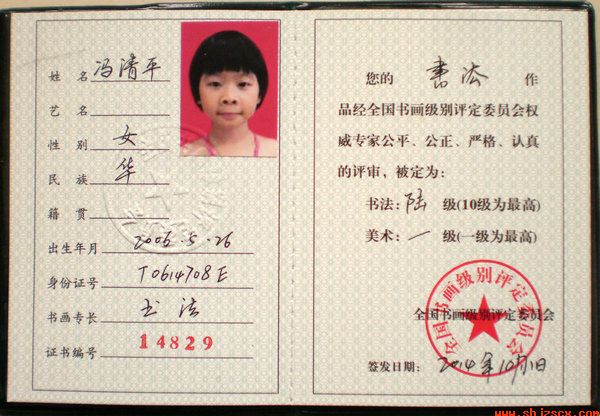 姓名 冯清平
艺名
性别 女
民族 华
籍贯
出生年月 2006.5.26
身份证号 T0614708E
书画专长 书法
证书编号 14829
您的 书法 作
品经全国书画级别评定委员会权
威专家公平、公正、严格、认真
的评审，被定为：
书法：陆 级(10级为最高)
美术：一 级(一级为最高)
全国书画级别评定委员会
全国书画级别评定委员会
签发日期： 2014年10月1日
www.shjzscx.com